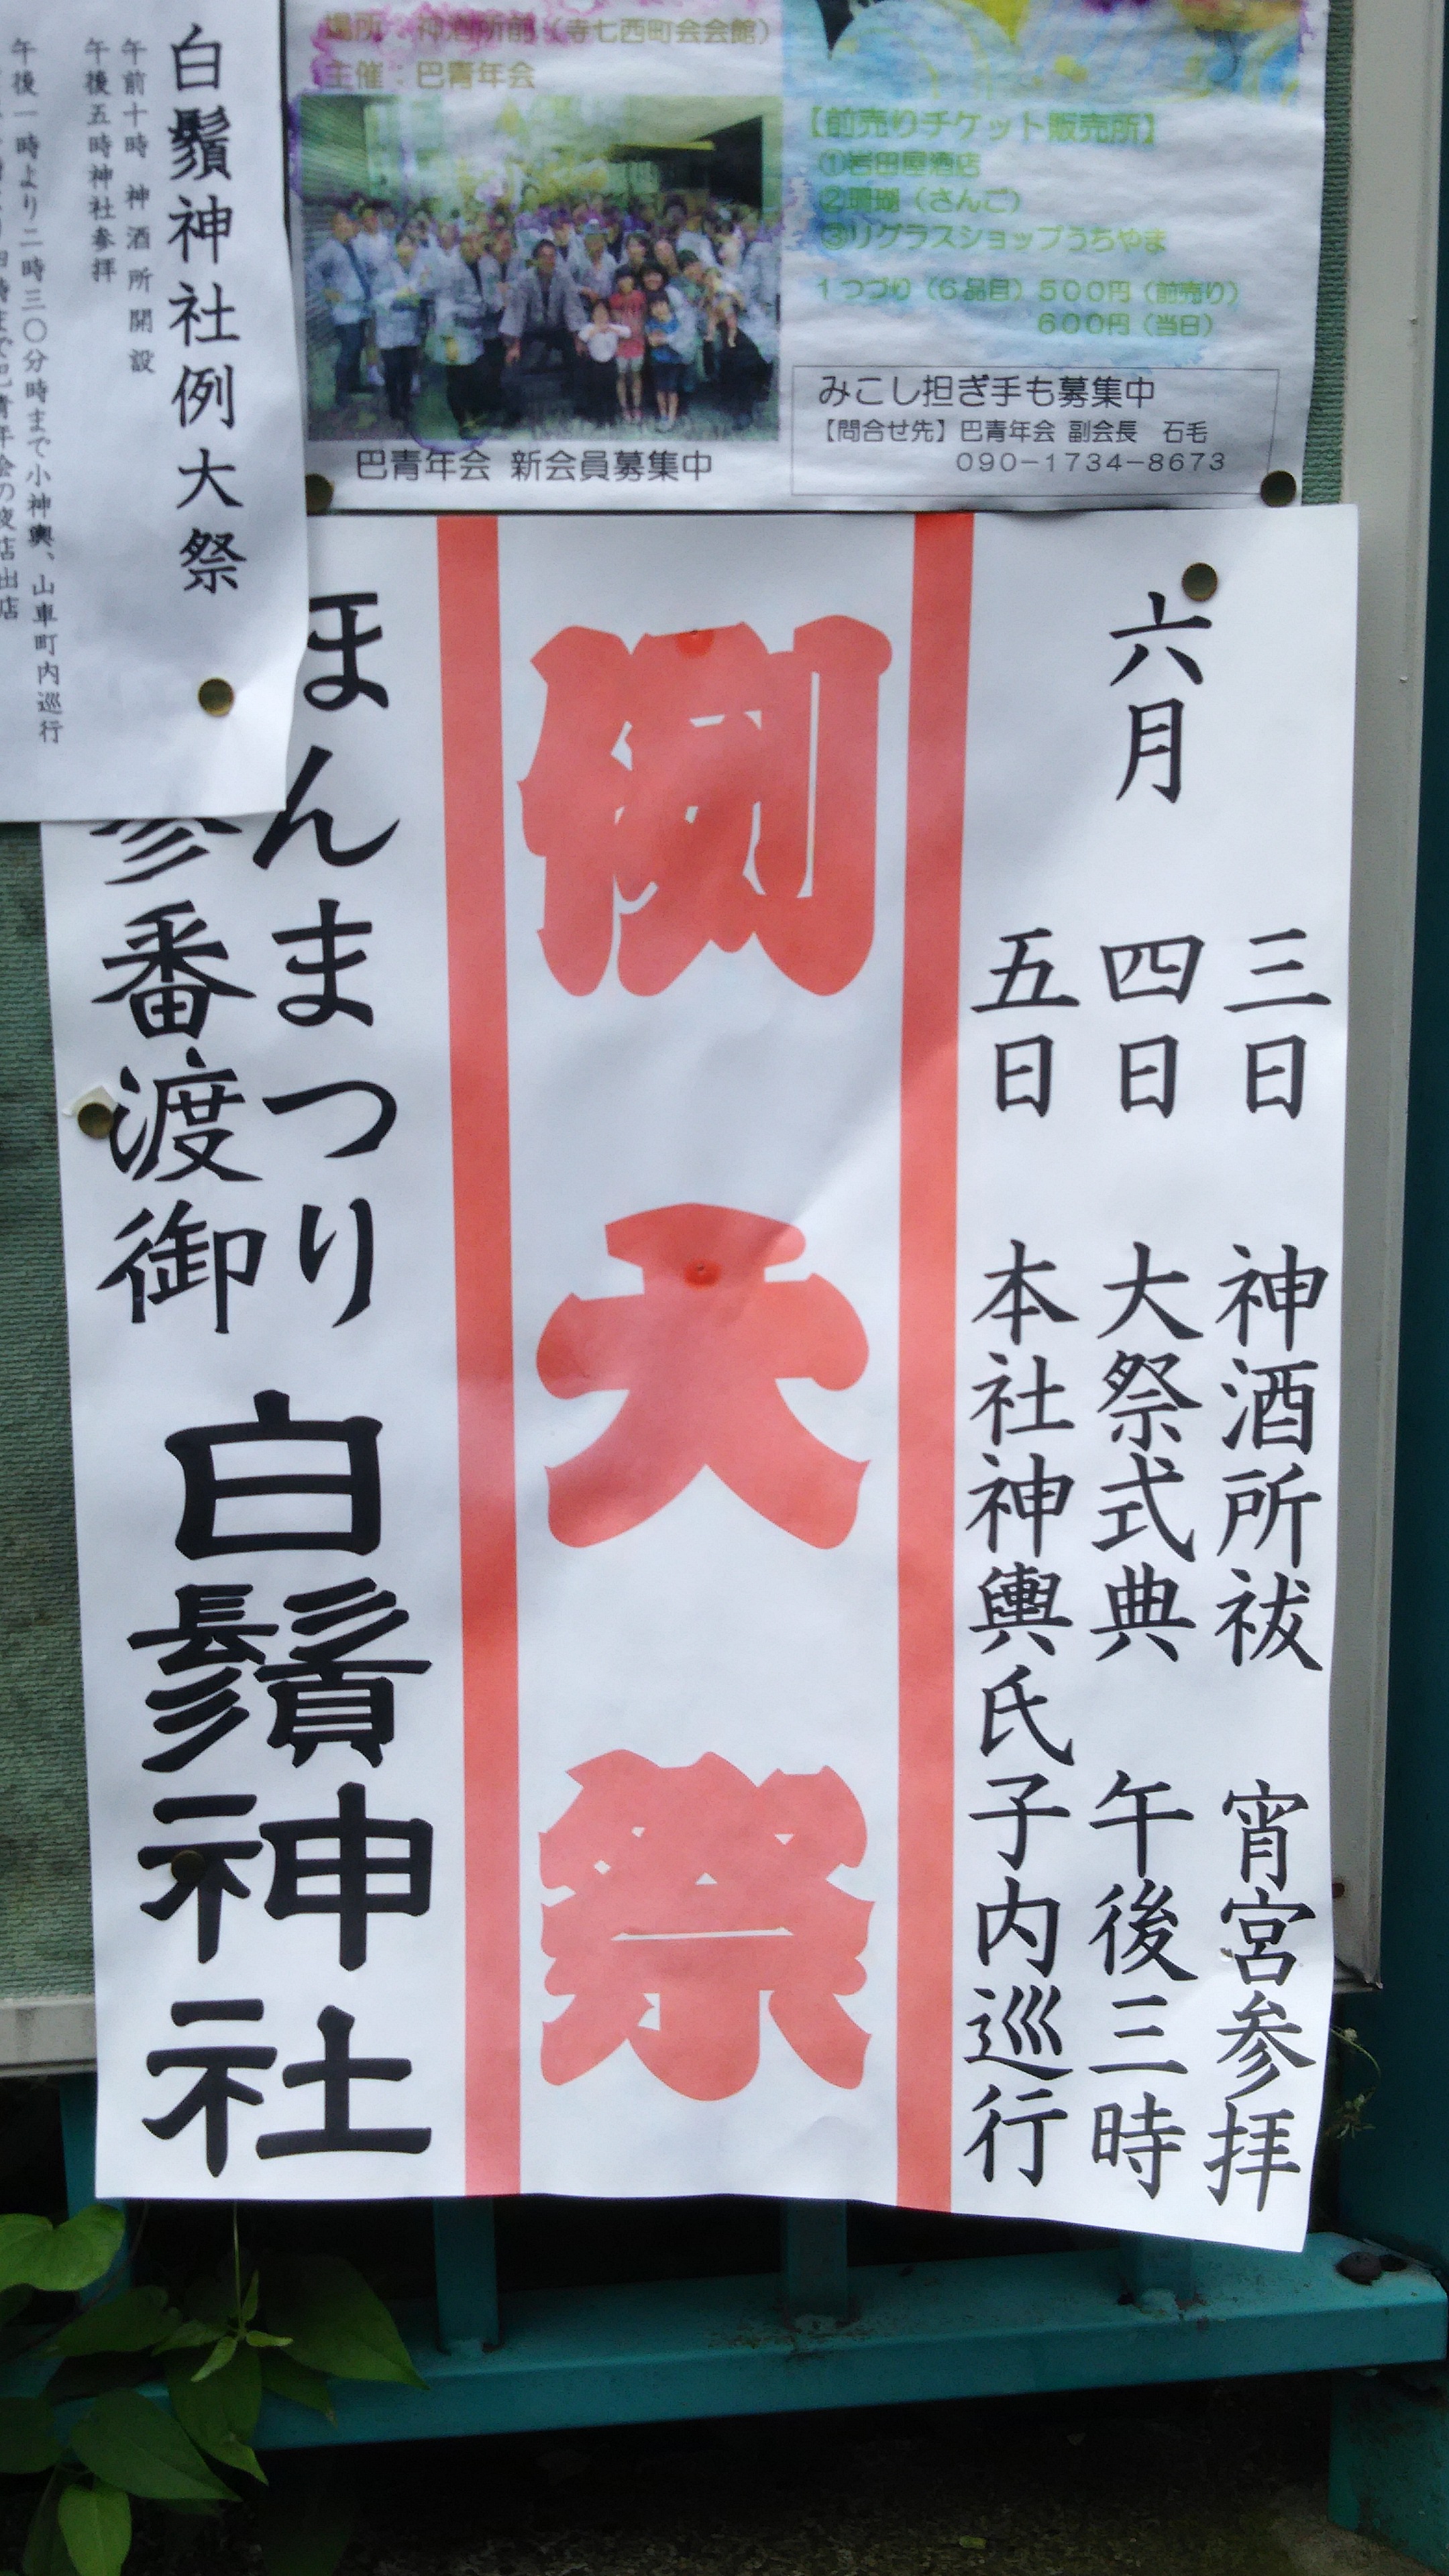 場所：神酒所前（寺七西町会会館）
主催：巴青年会
【前売りチケット販売所】
①岩田屋酒店
②珊瑚（さんご）
③リグラスショップうちやま
1つづり（6品目）500円（前売り）
600円（当日）
みこし担ぎ手も募集中
【問合せ先】巴青年会 副会長 石毛
090-1734-8673
巴青年会 新会員募集中
白鬚神社例大祭
午前十時 神酒所開設
午後五時神社参拝
午後一時より二時三〇分時まで小神輿、山車町内巡行
六月
三日 神酒所祓 宵宮参拝
四日 大祭式典 午後三時
五日 本社神輿氏子内巡行
例大祭
ほんまつり
参番渡御
白鬚神社